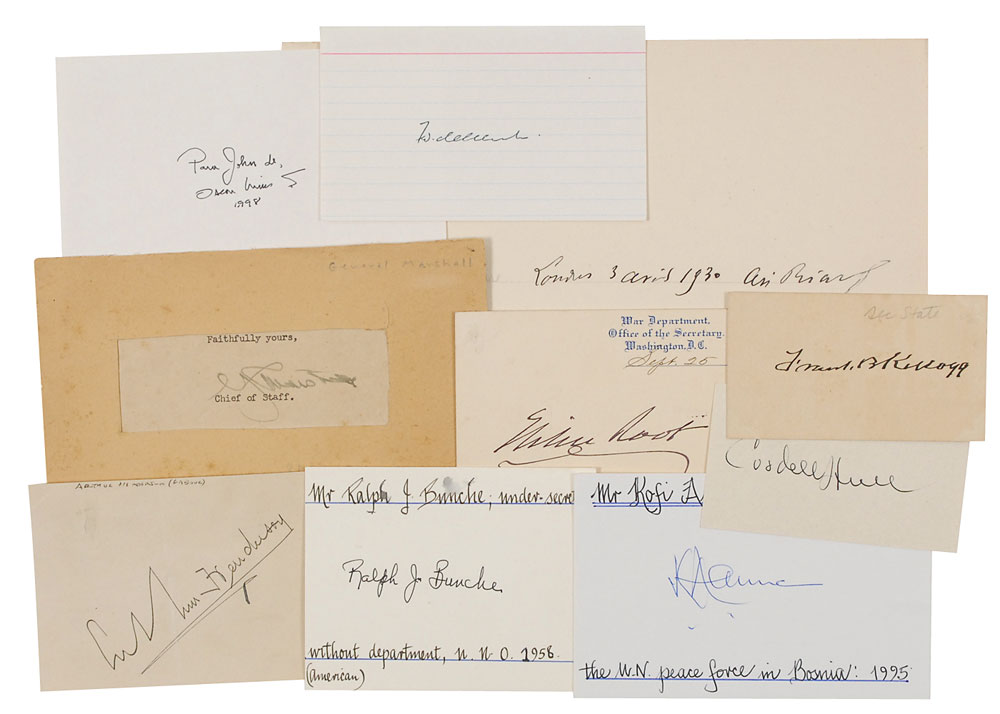 Para John de,
Oscar Arias S
1998
General Marshall
Londres 3 avril 1930 Ari Briand
Faithfully yours,
Chief of Staff.
War Department.
Office of the Secretary.
Washington, D.C.
Sept. 25
Elihu Root
Sec State
Frank B Kellogg
Cordell Hull
Arthur Henderson
Mr Ralph J Bunche, under-secre
Ralph J. Bunche
without department, U. N. O. 1958.
(American)
Mr Kofi A
the U.N. peace force in Bosnia: 1995